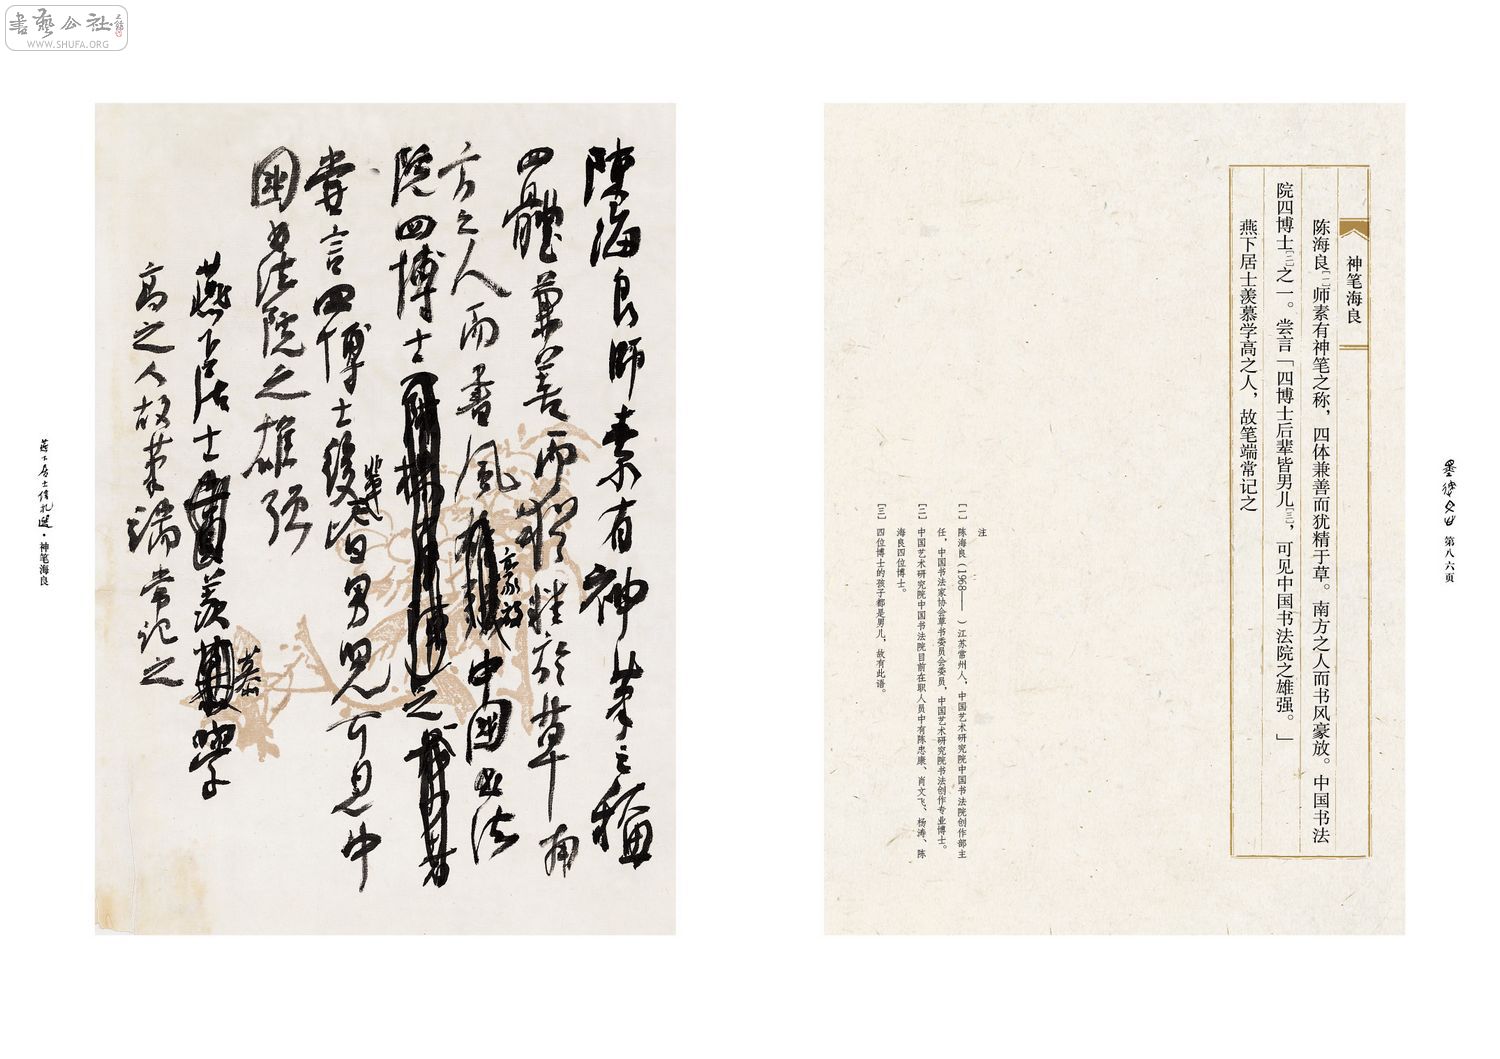 書藝公社
WWW.SHUFA.ORG
神笔海良
陈海良[一]师素有神笔之称，四体兼善而犹精于草。南方之人而书风豪放。中国书法
院四博士[二]之一。尝言「四博士后辈皆男儿[三]，可见中国书法院之雄强。」
燕下居士羡慕学高之人，故笔端常记之
注
[一] 陈海良（1968—— ）江苏常州人，中国艺术研究院中国书法院创作部主
任，中国书法家协会草书委员会委员，中国艺术研究院书法创作专业博士。
[二] 中国艺术研究院中国书法院目前在职人员中有陈忠康、肖文飞、杨涛、陈
海良四位博士。
[三] 四位博士的孩子都是男儿，故有此语。
第八六页
陳海良師素有神筆之稱
四體兼善而猶精於草南
方之人而書風豪放中國書法
院四博士之
嘗言四博士後輩皆男兒可見中
國書法院之雄强
燕下居士羨慕學
高之人故筆端常记之
燕下居士信札选·神笔海良